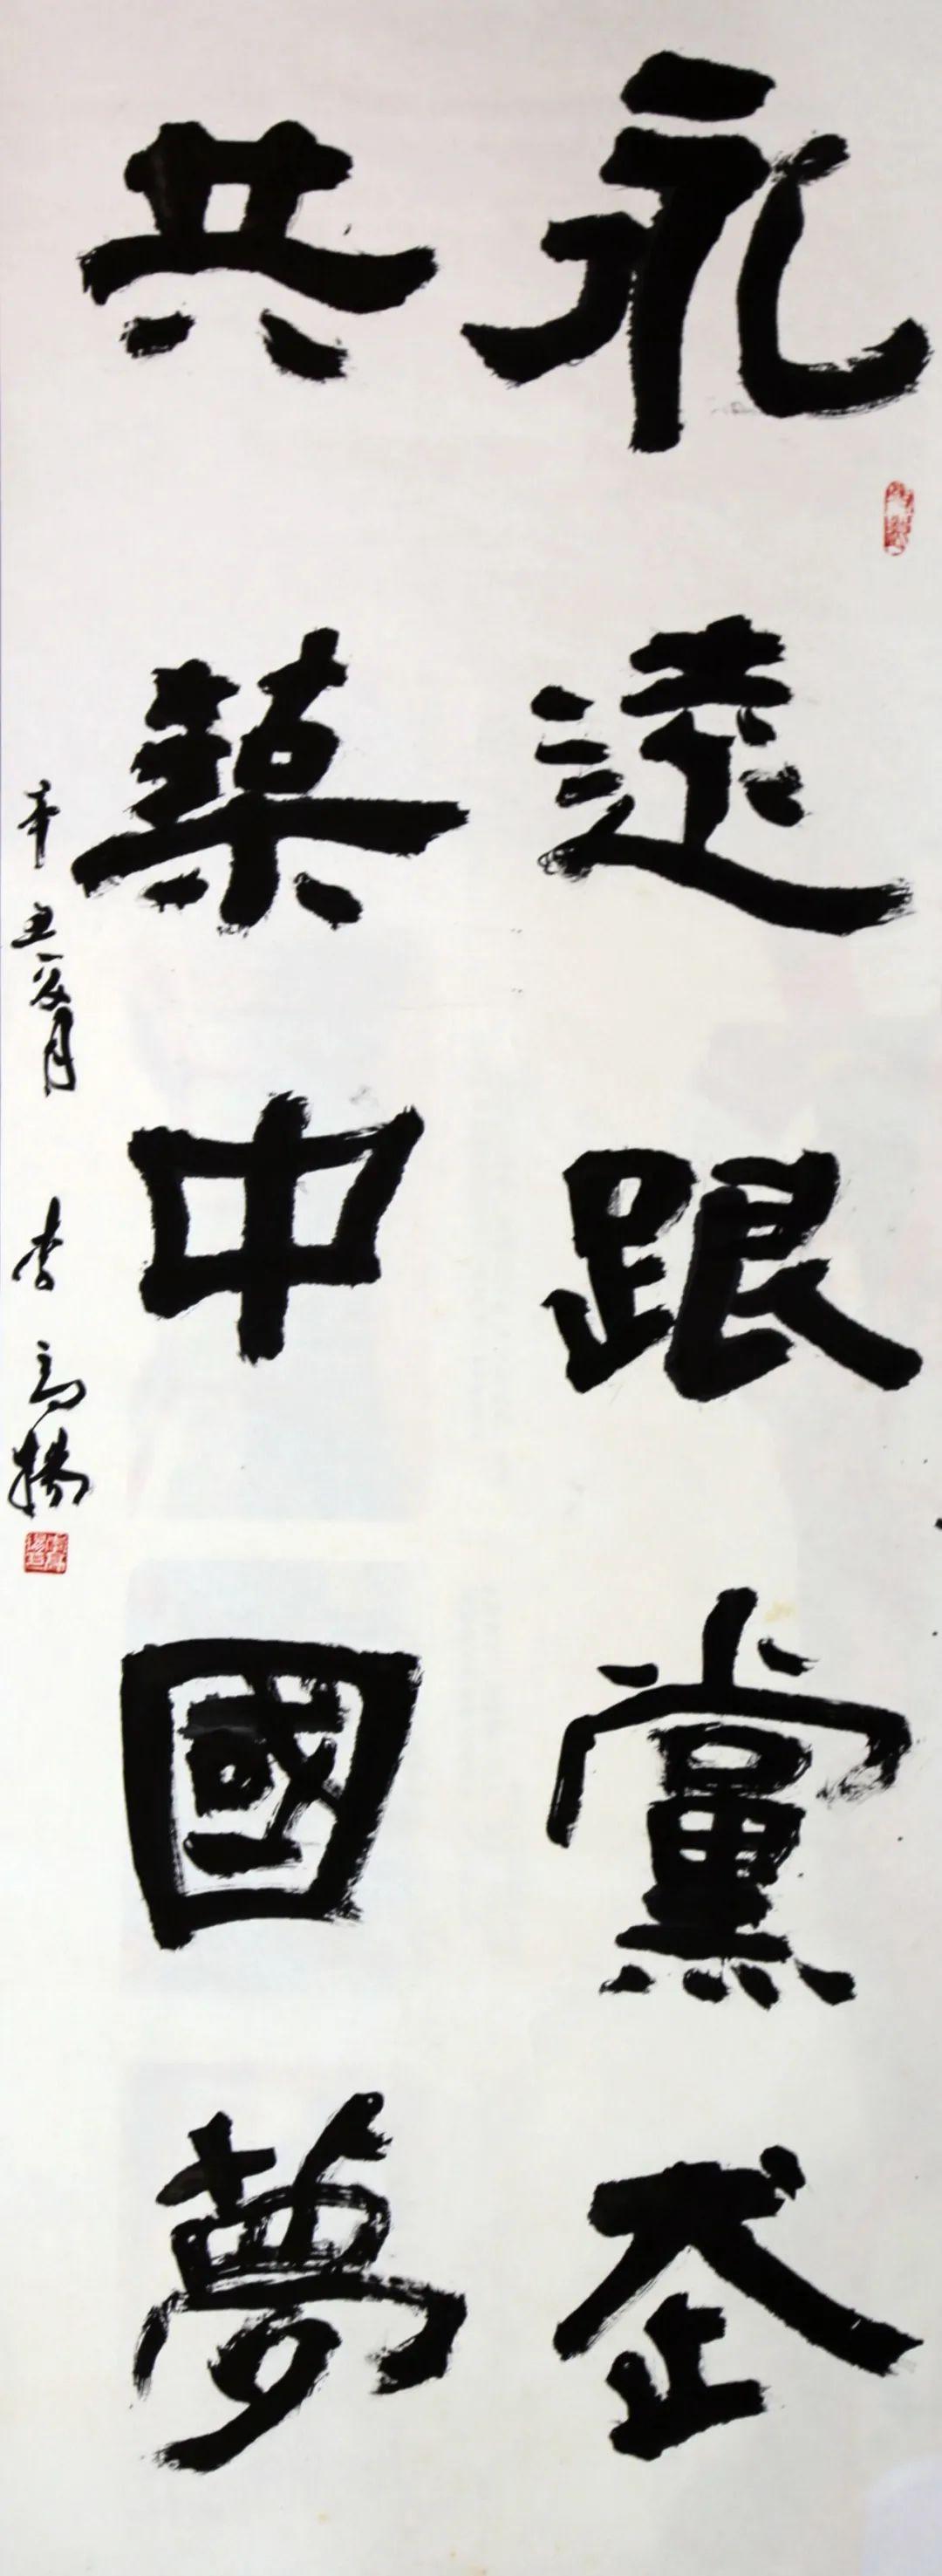 永遠跟黨走
共築中國夢
辛丑夏月 李高揚